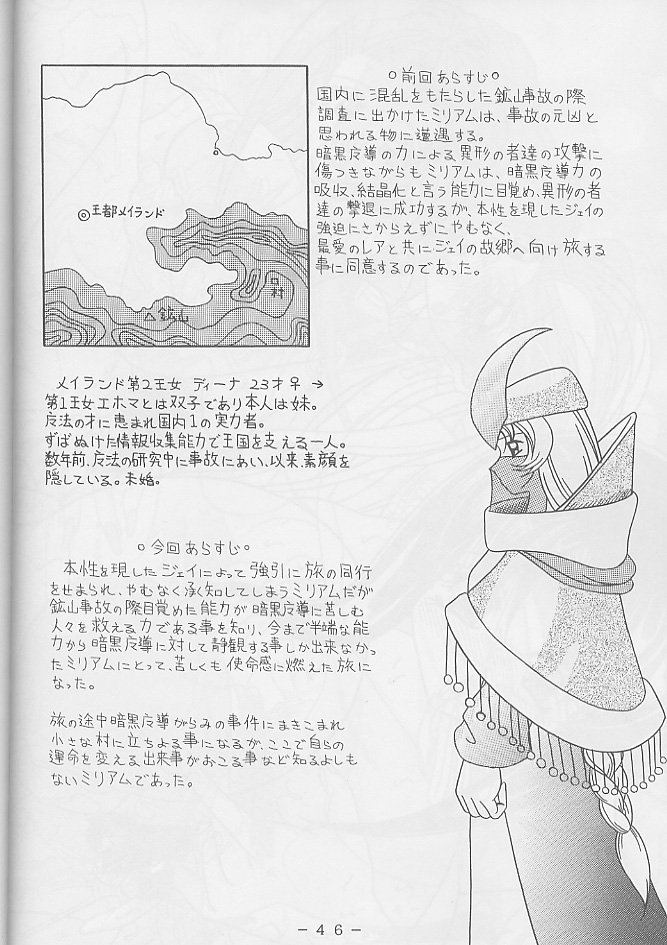 ○前回あらすじ○
国内に混乱をもたらした鉱山事故の際
調査に出かけたミリアムは、事故の元凶と
思われる物に遭遇する。
暗黒反導の力による異形の者達の攻撃に
傷つきながらもミリアムは、暗黒反導力の
吸収、結晶化と言う能力に目覚め、異形の者
達の撃退に成功するが、本性を現したジェイの
強迫にさからえずにやむなく、
最愛のレアと共にジェイの故郷へ向け旅する
事に同意するのであった。
◎王都メイランド
△鉱山
村
メイランド第2王女 ディーナ 23才♀→
第1王女エホマとは双子であり本人は妹。
反法の才に恵まれ国内1の実力者。
ずばぬけた情報収集能力で王国を支える一人。
数年前、反法の研究中に事故にあい、以来、素顔を
隠している。未婚。
○今回あらすじ○
本性を現したジェイによって強引に旅の同行
をせまられ、やむなく承知してしまうミリアムだが
鉱山事故の際目覚めた能力が暗黒反導に苦しむ
人々を救える力である事を知り、今まで半端な能
力から暗黒反導に対して静観する事しか出来なかっ
たミリアムにとって、苦しくも使命感に燃えた旅に
なった。
旅の途中暗黒反導がらみの事件にまきこまれ
小さな村に立ちよる事になるが、ここで自らの
運命を変える出来事がおこる事など知るよしも
ないミリアムであった。
－46－